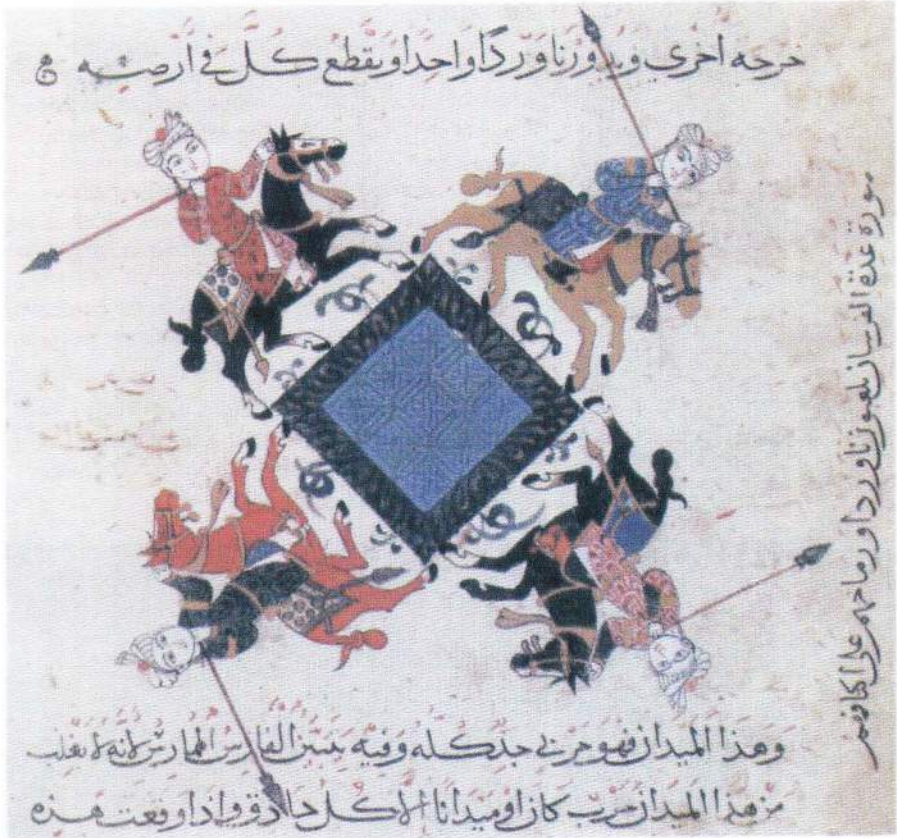 خرجه اخرى ويدورنا وردًا واحدا ويقطع كل في ارضه
صورة عدة الفرسان يلعبوز ناوردا ورماحهم على اكتافهم
وهذا الميدان فهو حربي جد كله وفيه يتبين الفارس الممارس لانه لا يغلب
من هذا الميدان حرب كان او ميدانا الا كل حاذق واذا وقعت هذه